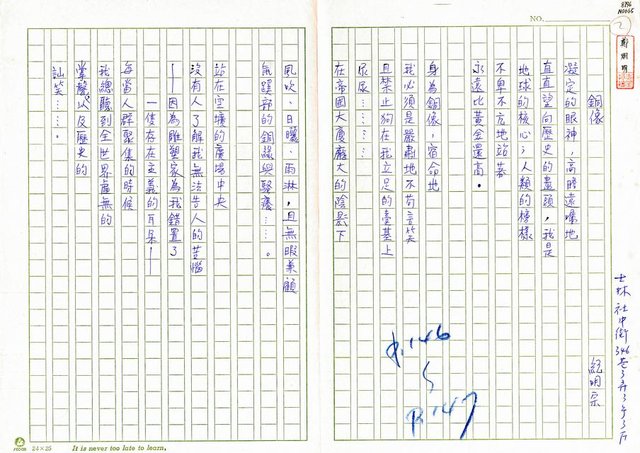 8986
N0055
NO.
銅像
凝定的眼神，高瞻遠矚地
直直望向歷史的盡頭，我是
地球的核心；人類的榜樣
不卑不亢地站著
永遠比黃金還高。
身為銅像，宿命地
我必須是嚴肅地不苟言笑
且禁止狗在我立足的臺基上
尿尿……
在帝國大廈龐大的陰影下
風吹、日曬、雨淋，且無暇兼顧
站在空曠的廣場中央
沒有人了解我無法告人的苦惱
——因為雕塑家為我錯置了
一隻存在主義的耳朵——
每當人群聚集的時候
我總聽到全世界虛無的
掌聲以及歷史的
訕笑……。
P.146
P.147
24×25
It is never too late to learn.